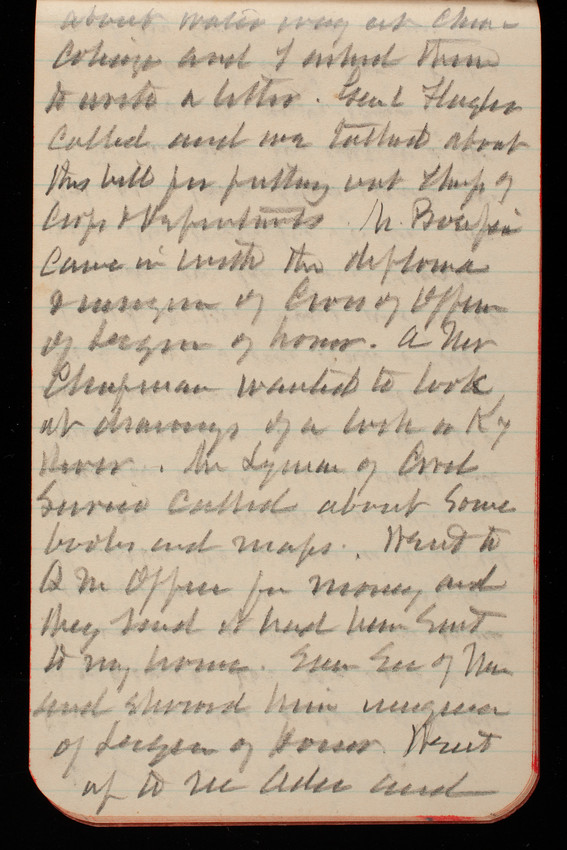 about water way at Chu-
and I asked them
to write a letter. Genl
Called and we talked about
this bill for putting out of
Corps & Departments. M.
came in with the diploma
& insignia of Cross of Officer
of Legion of honor. A Mr
Chapman wanted to look
at drawings of a lock on Ky
River. Mr Lyman of Civil
Service called about some
books and maps. Went to
Q M Office for money and
they said it had been sent
to my home. Saw Sec of War
and showed him insignia
of Legion of Honor. Went
up to see and